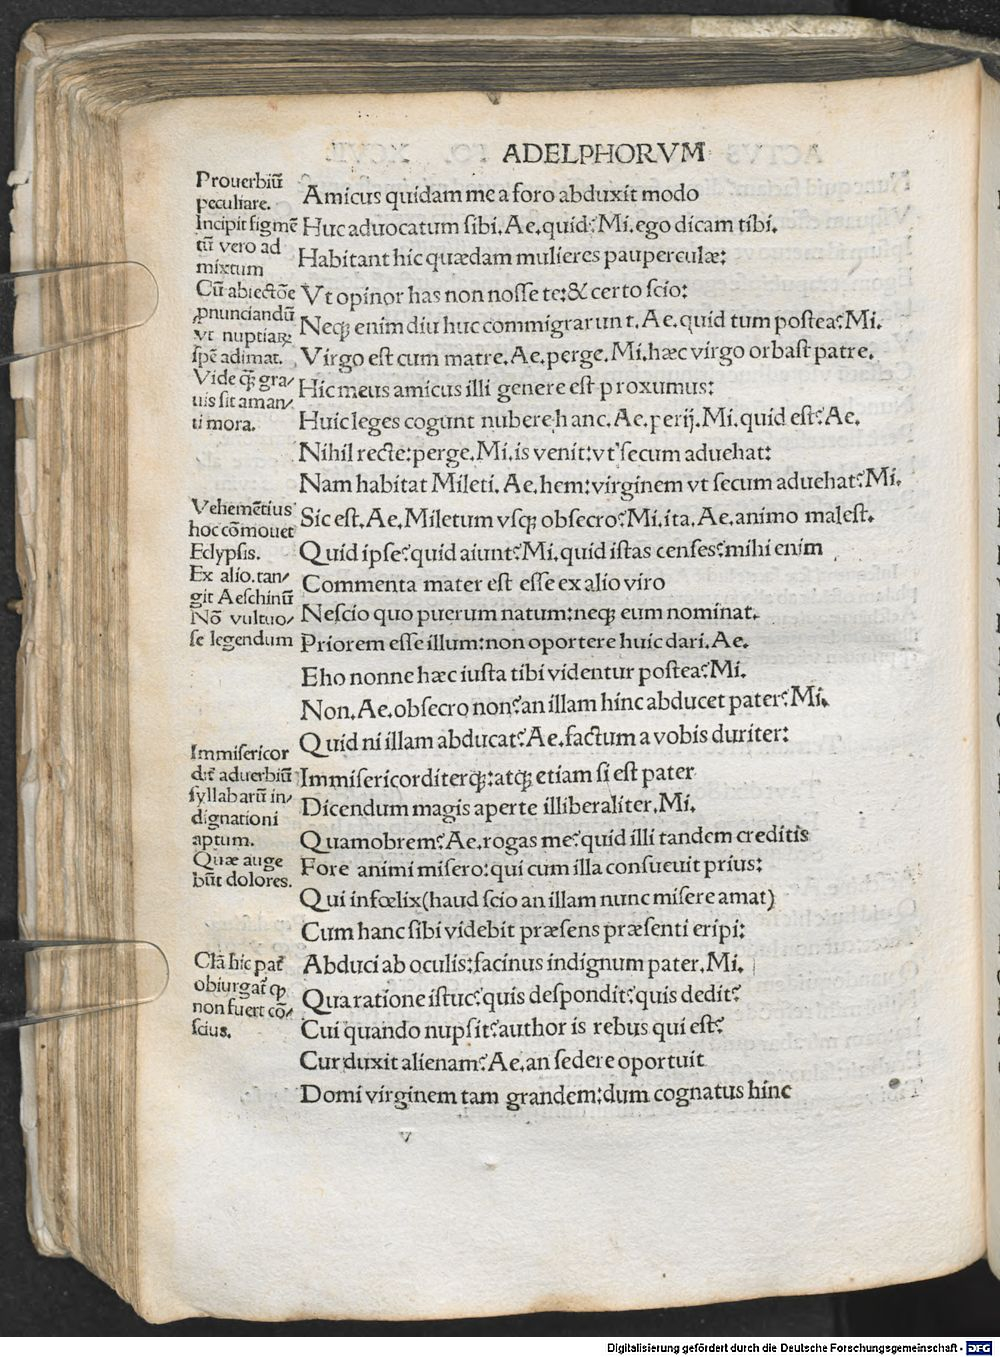 ADELPHORVM
Prouerbiū
peculiare.
Incipit figmē
tū vero ad
mixtum
Cū abiectōe
ꝓnunciandū
vt nuptiaꝝ
spē adimat.
Vide ꝙ̃ gra/
uis sit aman/
ti mora.
Vehemētius
hoc cōmouet
Eclypsis.
Ex alio. tan/
git Aeschinū
Nō vultuo/
se legendum
Immisericor
dit̃ aduerbiū
syllabarū in/
dignationi
aptum.
Quæ auge
būt dolores.
Clā hic pat̃
obiurgat̃ ꝙ
non fuert cō/
scius.
Amicus quidam me a foro abduxit modo
Huc aduocatum sibi. Ae. quid? Mi. ego dicam tibi.
Habitant hic quædam mulieres pauperculæ:
Vt opinor has non nosse te: & certo scio:
Neqꝫ enim diu huc commigrarunt. Ae. quid tum postea? Mi.
Virgo est cum matre. Ae. perge. Mi. hæc virgo orbast patre.
Hic meus amicus illi genere est proxumus:
Huic leges cogunt nubere hanc. Ae. perij. Mi. quid est? Ae.
Nihil recte: perge. Mi. is venit: vt secum aduehat:
Nam habitat Mileti. Ae. hem: virginem vt secum aduehat? Mi.
Sic est. Ae. Miletum vsqꝫ obsecro? Mi. ita. Ae. animo malest.
Quid ipse? quid aiunt? Mi. quid istas censes? mihi enim
Commenta mater est esse ex alio viro
Nescio quo puerum natum: neqꝫ eum nominat.
Priorem esse illum: non oportere huic dari. Ae.
Eho nonne hæc iusta tibi videntur postea? Mi.
Non. Ae. obsecro non? an illam hinc abducet pater? Mi.
Quid ni illam abducat? Ae. factum a vobis duriter:
Immisericorditerqꝫ: atqꝫ etiam si est pater
Dicendum magis aperte illiberaliter. Mi.
Quamobrem? Ae. rogas me? quid illi tandem creditis
Fore animi misero: qui cum illa consueuit prius:
Qui infœlix (haud scio an illam nunc misere amat)
Cum hanc sibi videbit præsens præsenti eripi:
Abduci ab oculis: facinus indignum pater. Mi.
Qua ratione istuc? quis despondit? quis dedit?
Cui quando nupsit? author is rebus qui est?
Cur duxit alienam? Ae. an sedere oportuit
Domi virginem tam grandem: dum cognatus hinc
v
Digitalisierung gefördert durch die Deutsche Forschungsgemeinschaft - DFG